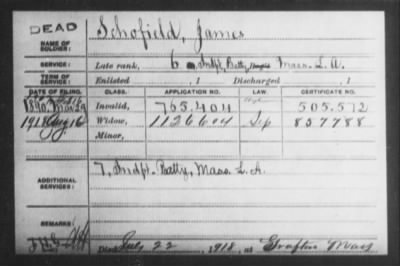 DEAD
NAME OF SOLDIER: Schofield, James
SERVICE: Late rank, 6 Indpt. Batty, Mass. L. A.
TERM OF SERVICE: Enlisted , 1 Discharged , 1
DATE OF FILING. CLASS. APPLICATION NO. LAW. CERTIFICATE NO.
1890, Invalid, 765.404 505.572
1918 Aug 16 Widow, 1126604 857788
Minor,
ADDITIONAL SERVICES: 7, Indpt. Batty, Mass. L. A.
REMARKS:
Died July 22, 1918, at Grafton Mass